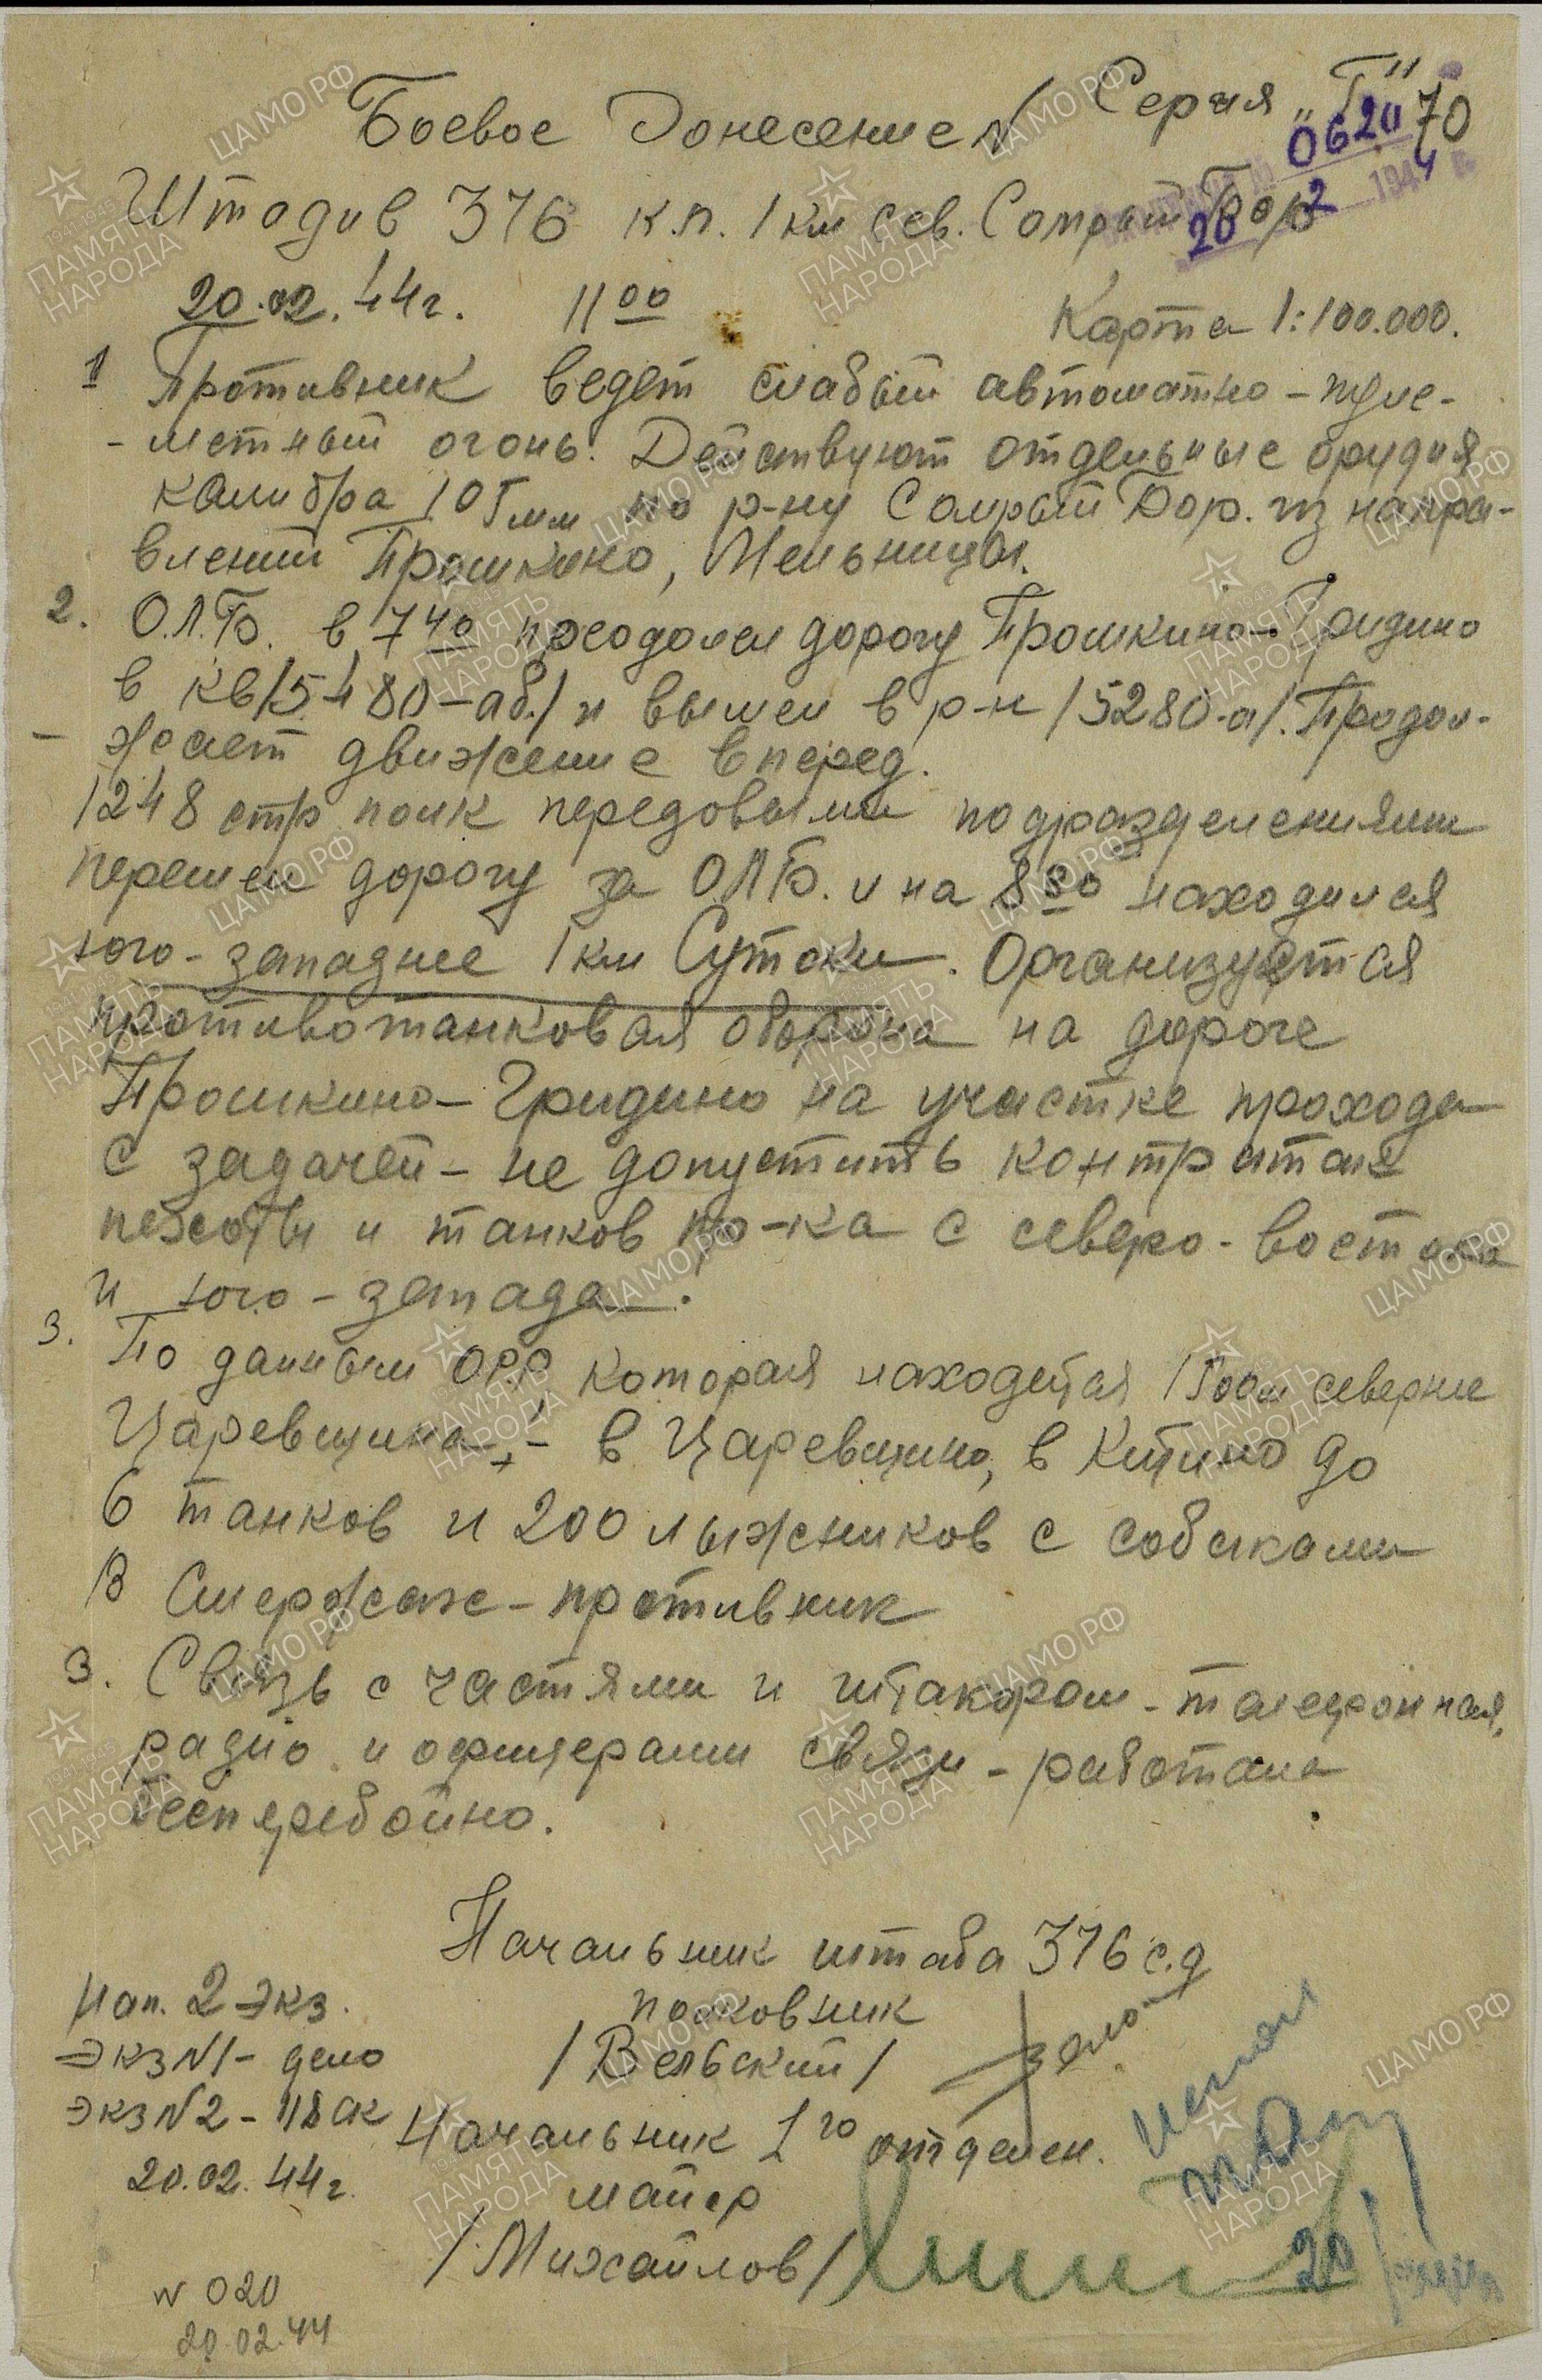 Серия „Г" 70
Боевое Донесение №
0620
20 2 1944 г.
Штадив 376 к.п. 1 км сев. Сопрый Бор
20.02.44г. 11 00
Карта 1:100.000.
1 Противник ведет слабый автоматно-пуле-
-метный огонь. Действуют отдельные орудия
калибра 105мм по р-ну Бор. из напра-
влений Прошкино, Мельница.
2. О.Л.Б. в 7 40 преодолел дорогу Прошкино-Гридино
в кв/5480-аб/ и вышел в р-н /5280-а/. Продол-
-жает движение вперед.
1248 стр полк передовыми подразделениями
перешел дорогу за О.Л.Б. и на 8 50 находился
юго-западнее 1 км Сутоки. Организуется
противотанковая оборона на дороге
Прошкино-Гридино на участке прохода
с задачей - не допустить контратак
пехоты и танков пр-ка с северо-востока
и юго-запада.
3. По данным ОРР которая находится 1500м севернее
Царевщина, - в Царевщино, в Китино до
6 танков и 200 лыжников с собаками
В Смержаже - противник
3. Связь с частями и штакором - телефонная,
радио и офицерами связи - работала
бесперебойно.
Начальник штаба 376 с.д
полковник
/Вельский/
Начальник 1го отделен.
майор
/Михайлов/
Нап. 2 экз.
экз №1 - дело
экз №2 - 118 ск
20.02.44г.
№ 020
20.02.44
20
ЦАМО РФ
ПАМЯТЬ НАРОДА
1941-1945